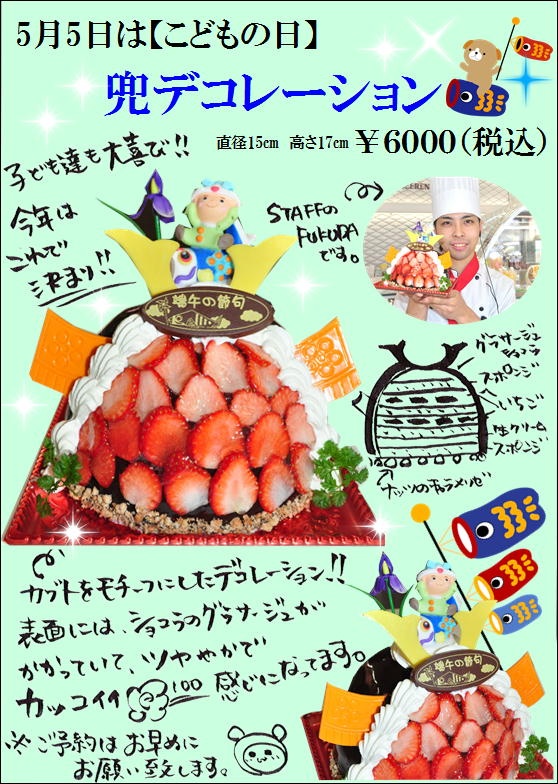 5月5日は【こどもの日】
兜デコレーション
直径15cm 高さ17cm ￥6000(税込)
子ども達も大喜び!!
今年は
これで
決まり!!
STAFFの
FUKUDA
です。
端午の節句
グラサージュ
ショコラ
スポンジ
いちご
生クリーム
スポンジ
ナッツのキャラメリゼ
カブトをモチーフにしたデコレーション!!
表面には、ショコラのグラサージュが
かかっていて、ツヤやかで
カッコイイ 100 感じになってます。
端午の節句
※ご予約はお早めに
お願い致します。